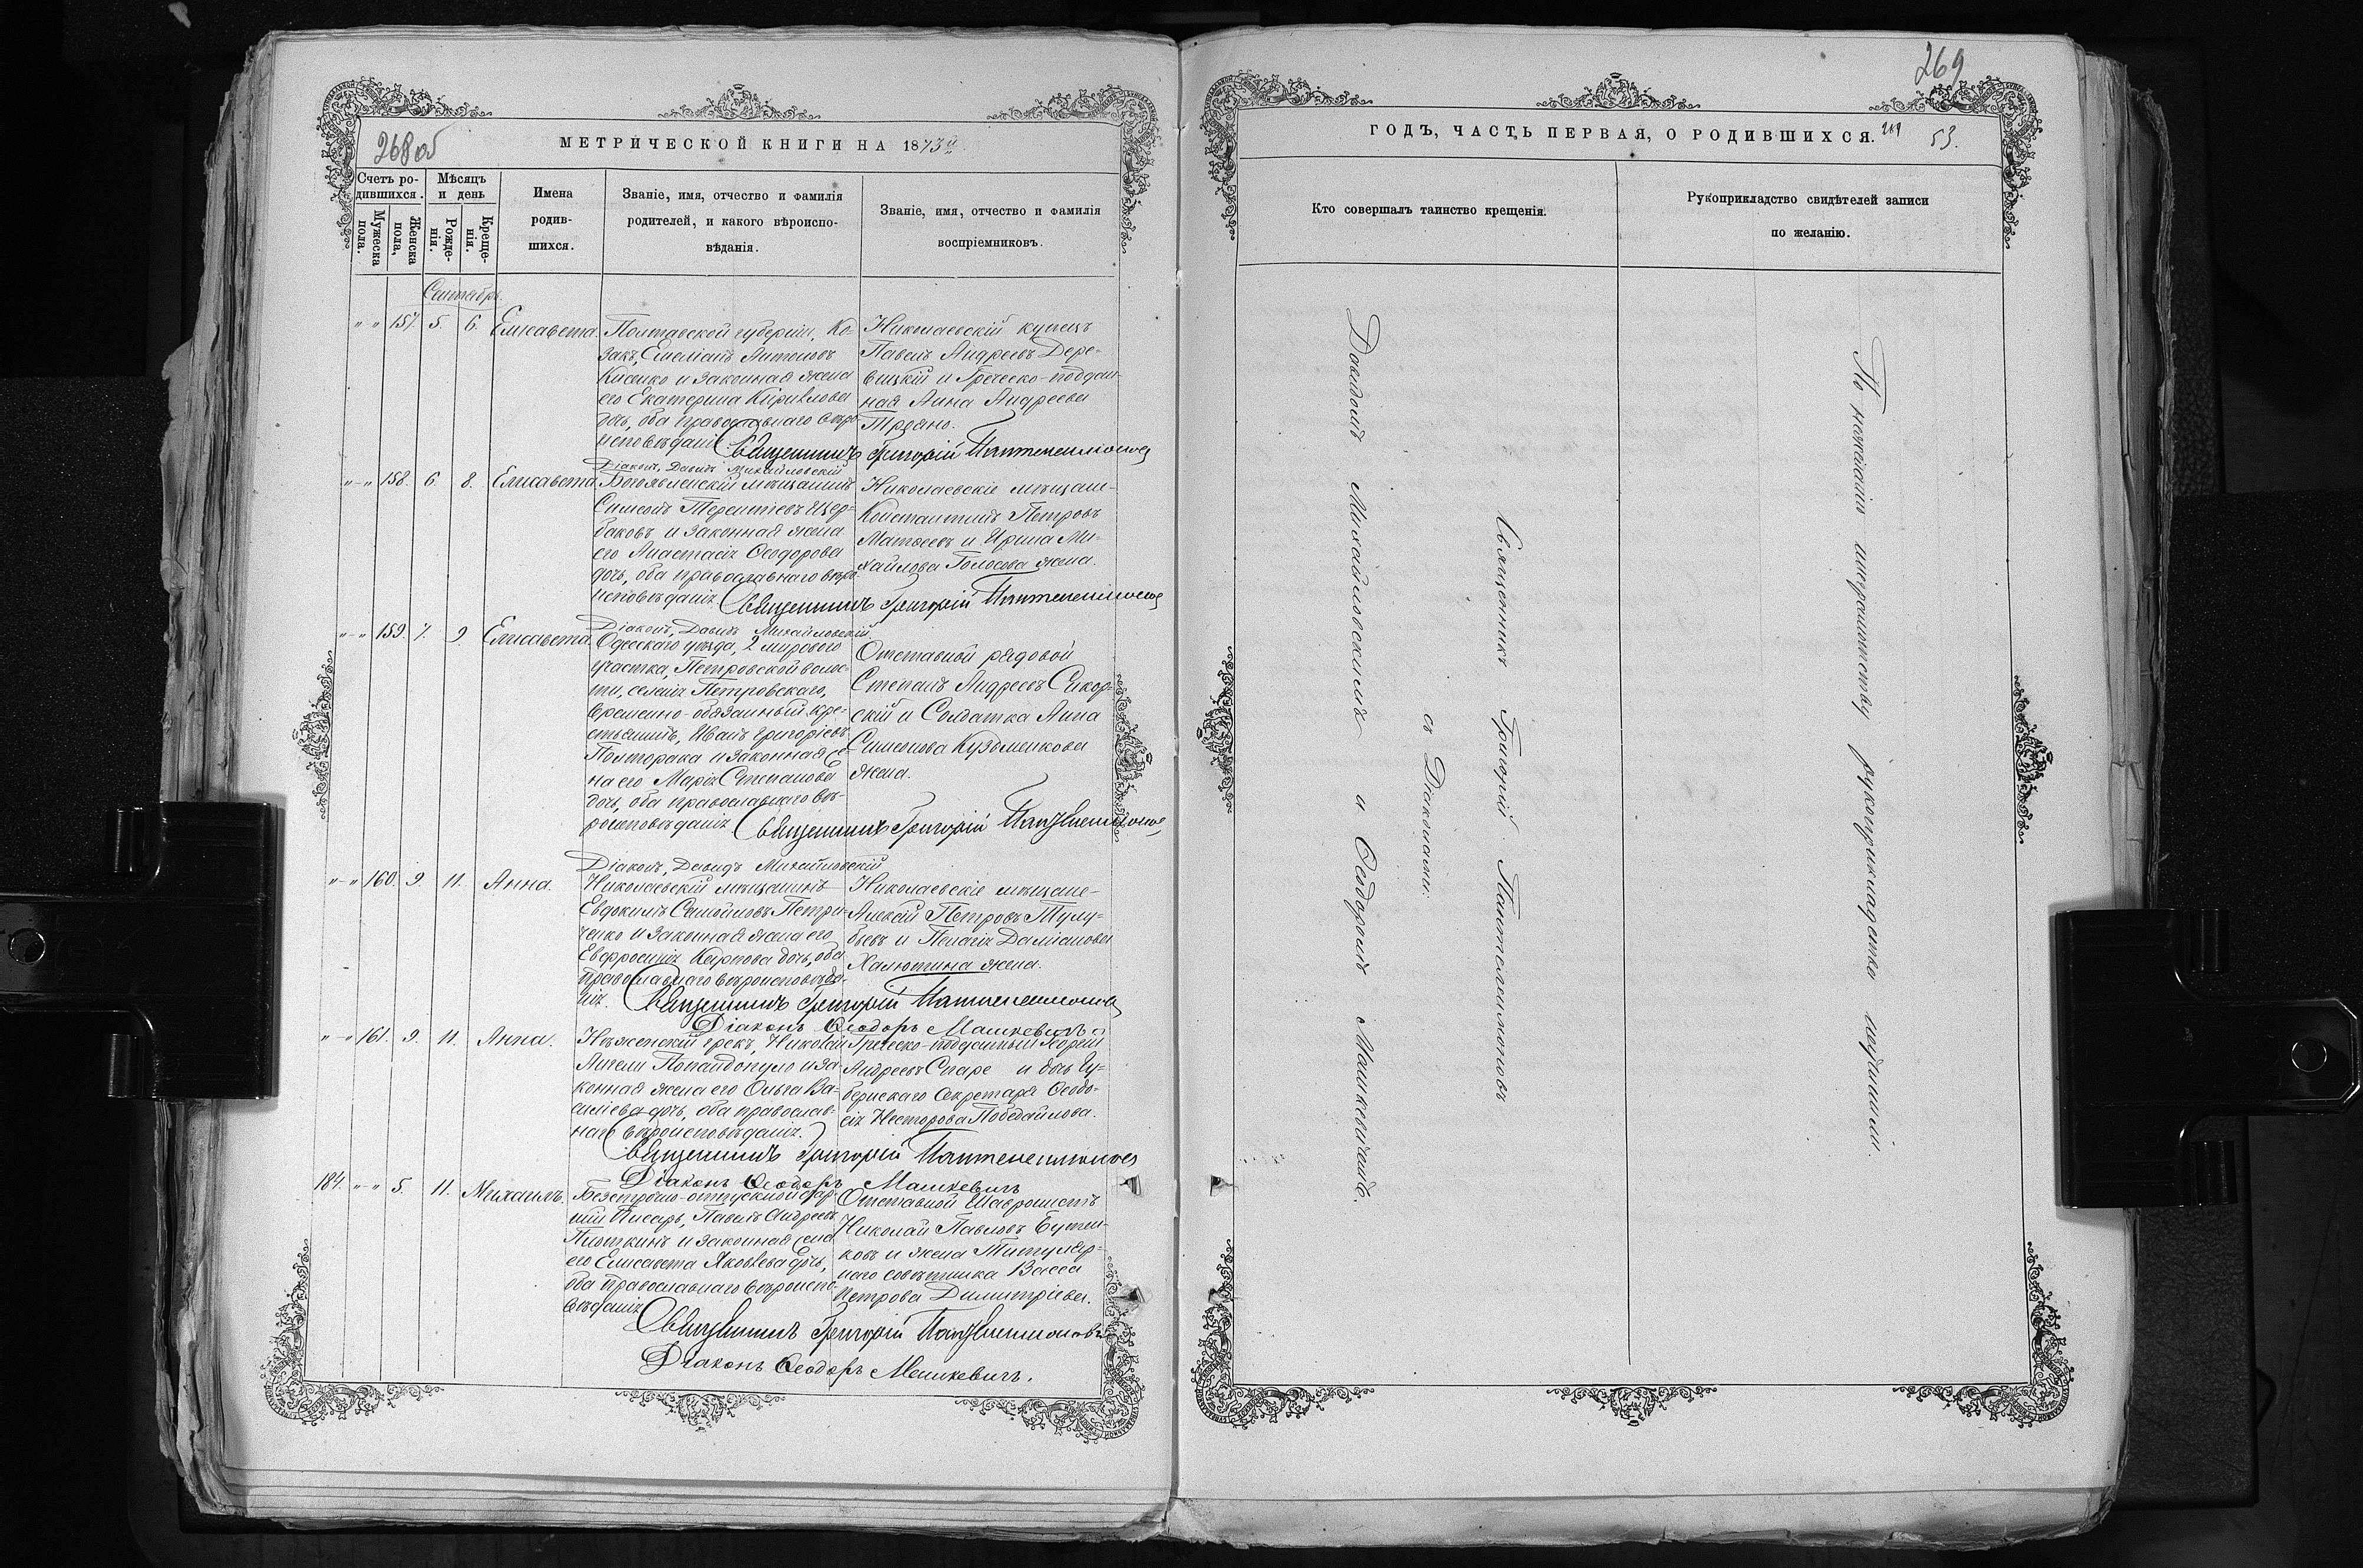 268 об
МЕТРИЧЕСКОЙ КНИГИ НА 1873й
Счетъ ро-
дившихся.
Мужеска
пола.
Женска
пола.
Мѣсяцъ
и день
Рожде-
нія.
Креще-
нія.
Имена
родив-
шихся.
Званіе, имя, отчество и фамилія
родителей, и какого вѣроиспо-
вѣданія.
Званіе, имя, отчество и фамилія
воспріемниковъ.
Сентябрь.
" " 157. 5. 6. Елисавета.
Полтавской губерніи, Ко-
закъ, Емеліанъ Антоновъ
Кисенко и законная жена
его Екатерина Кирилова
дочь, оба православнаго вѣро-
исповѣданія
Николаевскій купецъ
Павелъ Андреевъ Дере-
вицкій и Греческо-поддан-
ная Анна Андреева
Трояно.
Священникъ Григорій Пантелеимоновъ
Діаконъ, Давидъ Михайловскій
" " 158. 6. 8. Елисавета.
Богоявленскій мѣщанинъ
Симеонъ Терентіевъ Щер-
баковъ и законная жена
его Анастасія Ѳеодорова
дочь, оба православнаго вѣро-
исповѣданія
Николаевскіе мѣщане-
Константинъ Петровъ
Матвеевъ и Ирина Ми-
хайлова Голосова жена.
Священникъ Григорій Пантелеимоновъ
Діаконъ, Давидъ Михайловскій.
" " 159. 7. 9. Елисавета.
Одесскаго уѣзда, 2 мироваго
участка, Петровской волос-
ти, селенія Петровскаго,
временно-обязанный кре-
стьянинъ, Иванъ Григоріевъ
Полторака и законная же-
на его Марія Степанова
дочь, оба православнаго вѣ-
роисповѣданія
Отставной рядовой
Степанъ Андреевъ Сикор-
скій и Солдатка Анна
Симонова Кузьменкова
жена.
Священникъ Григорій Пантелеимоновъ
Діаконъ, Давидъ Михайловскій
" " 160. 9. 11. Анна.
Николаевскій мѣщанинъ
Евдокимъ Самойловъ Петри-
ченко и законная жена его
Евфросинія Карпова дочь, оба
православнаго вѣроисповѣда-
нія.
Николаевскіе мѣщане-
Алексій Петровъ Тулу-
бьевъ и Пелагія Даміанова
Халютина жена.
Священникъ Григорій Пантелеимоновъ
Діаконъ Ѳеодоръ Машкевичъ
" " 161. 9. 11. Анна.
Нѣжинскій грекъ, Николай
Ангели Попандопуло и за-
конная жена его Ольга Ва-
силіева дочь, оба православ-
наго вѣроисповѣданія.
Греческо-подданный Георгій
Андреевъ Спаре и дочь Гу-
бернскаго Секретаря Ѳеодо-
сія Несторова Побѣдайлова.
Священникъ Григорій Пантелеимоновъ
Діаконъ Ѳеодоръ Машкевичъ
184. " " 5. 11. Михаилъ.
Безсрочно-отпускной стар-
шій Писарь, Павелъ Андреевъ
Пляткинъ и законная жена
его Елисавета Яковлева дочь,
оба православнаго вѣроиспо-
вѣданія
Отставной Шаврошистъ
Николай Павловъ Бутен-
ковъ и жена Титуляр-
наго совѣтника Васса
Петрова Димитріева.
Священникъ Григорій Пантелеимоновъ
Діаконъ Ѳеодоръ Машкевичъ.
269
ГОДЪ, ЧАСТЬ ПЕРВАЯ, О РОДИВШИХСЯ.
269
53.
Кто совершалъ таинство крещенія.
Рукоприкладство свидѣтелей записи
по желанію.
Священникъ Григорій Пантелеимоновъ
съ Діаконами:
Давидомъ Михайловскимъ и Ѳеодоромъ Машкевичемъ.
По незнанію неграмотству рукоприкладства неучинили.